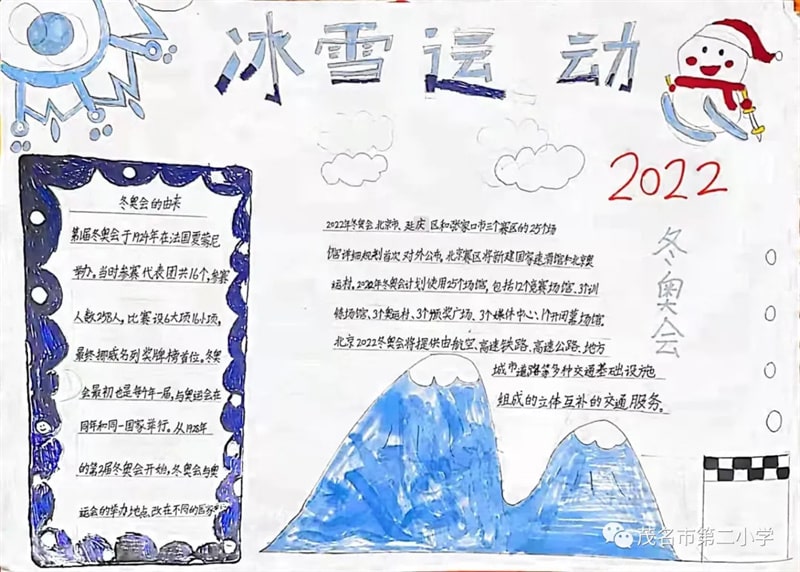 冰雪运动
2022
冬奥会
冬奥会的由来
第1届冬奥会于1924年在法国夏蒙尼
举办。当时参赛代表团共16个,参赛
人数258人,比赛设6大项16小项,
最终挪威名列奖牌榜首位。冬奥
会最初也是每4年一届,与奥运会在
同年和同一国家举行。从1928年
的第2届冬奥会开始,冬奥会与奥
运会的举办地点,改在不同的国家举
2022年冬奥会北京市、延庆区和张家口市三个赛区的25个场
馆详细规划首次对外公布,北京赛区将新建国家速滑馆和北京奥
运村。2022年冬奥会计划使用25个场馆,包括12个竞赛场馆、3个训
练场馆、3个奥运村、3个颁奖广场、3个媒体中心、1个开闭幕场馆.
北京2022冬奥会将提供由航空、高速铁路、高速公路、地方
城市道路等多种交通基础设施
组成的立体互补的交通服务。
茂名市第二小学